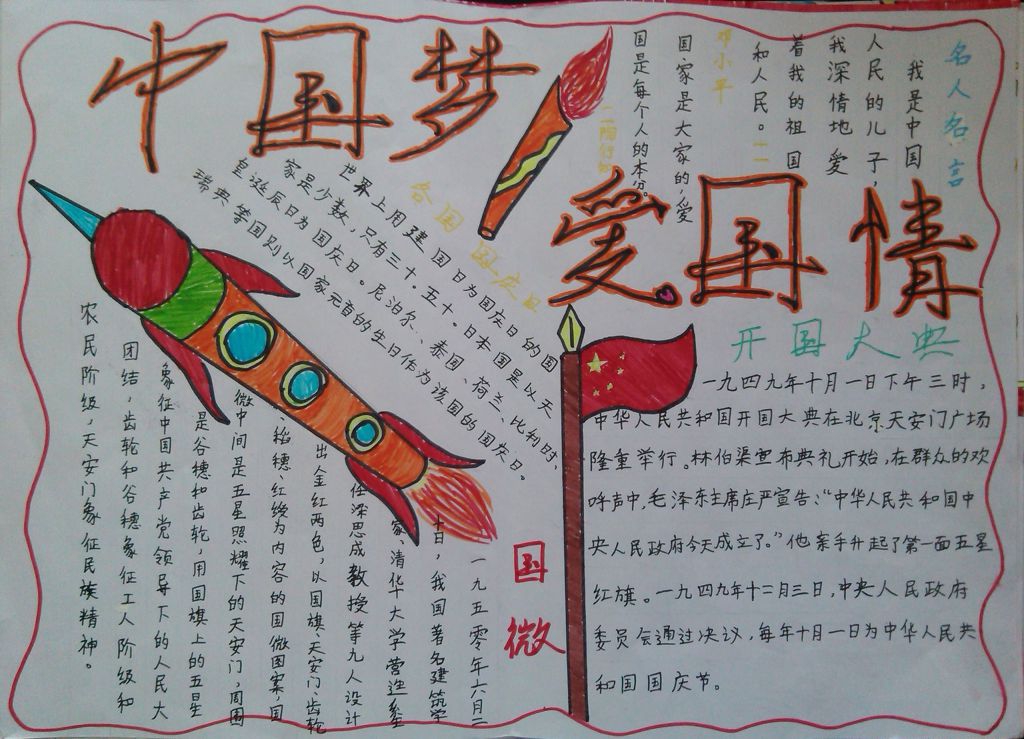 中国梦
爱国情
名人名言
我是中国
人民的儿子，
我深情地爱
着我的祖国
和人民。——
邓小平
国家是大家的，爱
国是每个人的本分。
——陶行知
各国国庆日
世界上用建国日为国庆日的国
家是少数，只有三十。五十。日本国是以天
皇诞辰日为国庆日。尼泊尔、泰国、荷兰、比利时、
瑞典等国则以国家元首的生日作为该国的国庆日。
开国大典
一九四九年十月一日下午三时，
中华人民共和国开国大典在北京天安门广场
隆重举行。林伯渠宣布典礼开始，在群众的欢
呼声中，毛泽东主席庄严宣告：“中华人民共和国中
央人民政府今天成立了。”他亲手升起了第一面五星
红旗。一九四九年十二月三日，中央人民政府
委员会通过决议，每年十月一日为中华人民共
和国国庆节。
国徽
一九五零年六月二
十日，我国著名建筑学
家、清华大学营造系
任深思成教授等九人设计
出金红两色，以国旗、天安门、齿轮
、稻穗、红绶为内容的国徽图案，国
徽中间是五星照耀下的天安门，周围
是谷穗和齿轮，用国旗上的五星
象征中国共产党领导下的人民大
团结，齿轮和谷穗象征工人阶级和
农民阶级，天安门象征民族精神。